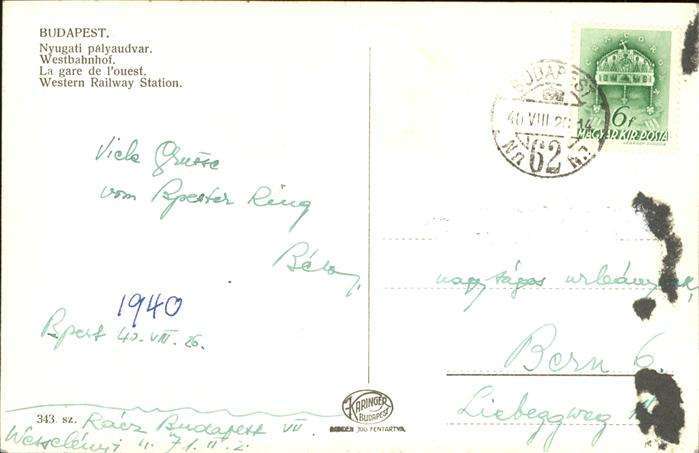 BUDAPEST.
Nyugati pályaudvar.
Westbahnhof.
La gare de l'ouest.
Western Railway Station.
BUDAPEST
40 VIII 26 14
62
6f
MAGYAR KIR. POSTA
Viele Grüsse
vom Bpester Ring
Béla
1940
Bpest 40. VIII. 26.
nagyságos urleánynak,
Bern 6.
Liebeggweg
KARINGER
BUDAPEST
MINDEN JOG FENTARTVA
343. sz.
Rácz Budapest VII.
Wesselényi u. 71. II. 2.